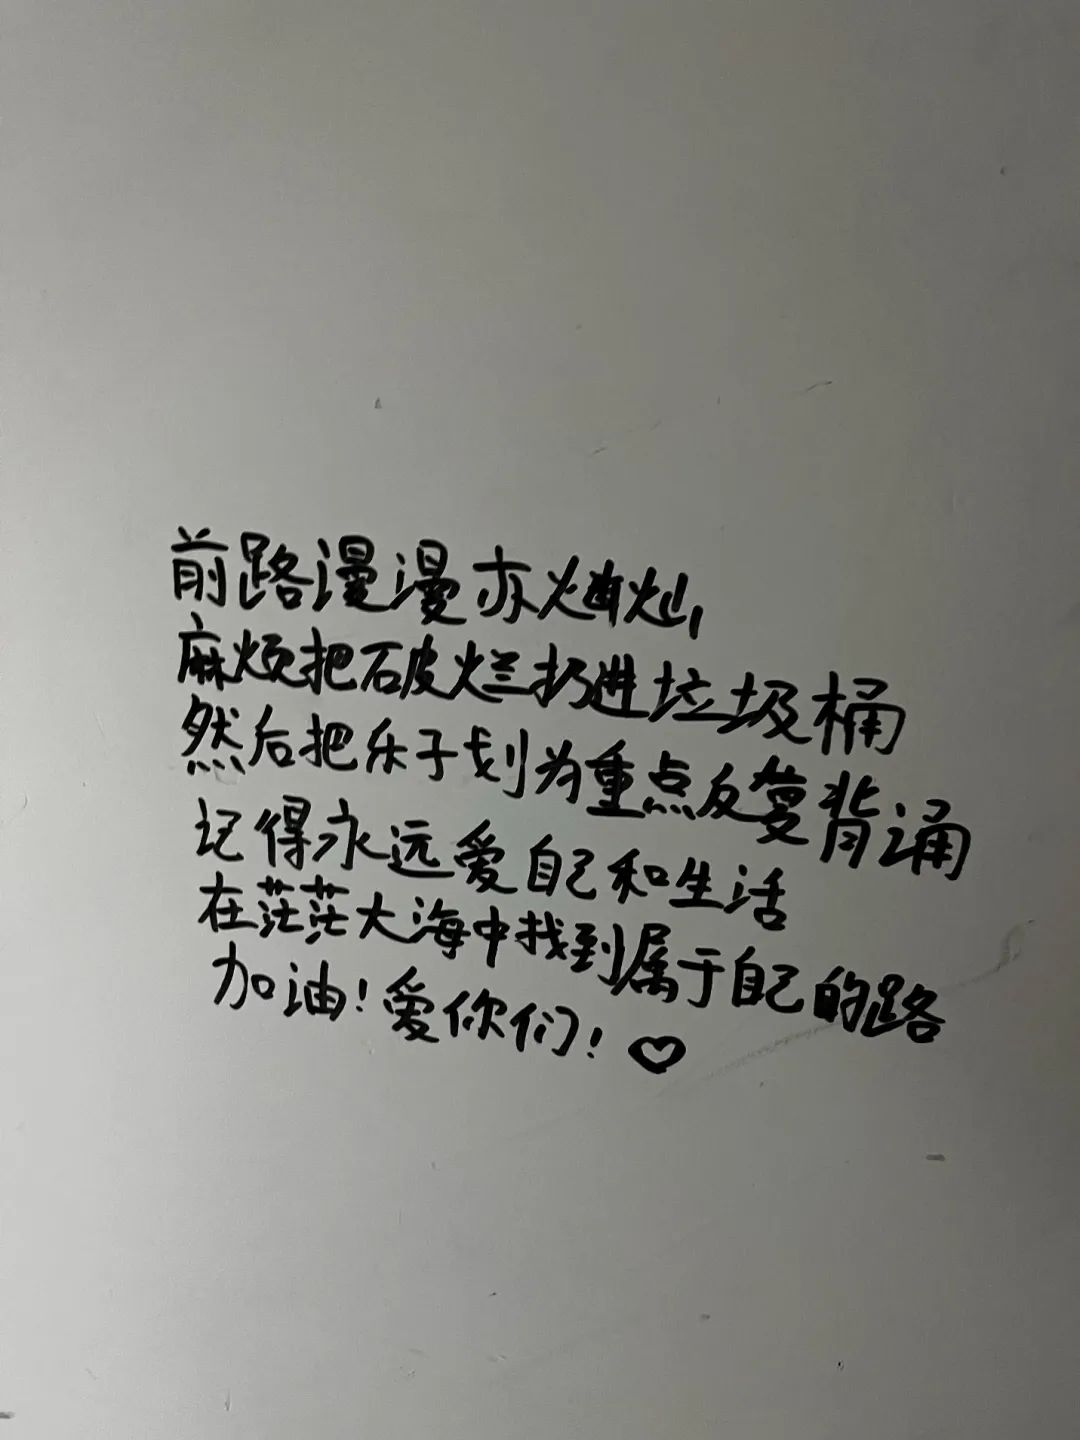 前路漫漫亦灿灿,
麻烦把破烂扔进垃圾桶
然后把乐子划为重点反复背诵
记得永远爱自己和生活
在茫茫大海中找到属于自己的路
加油!爱你们!♡